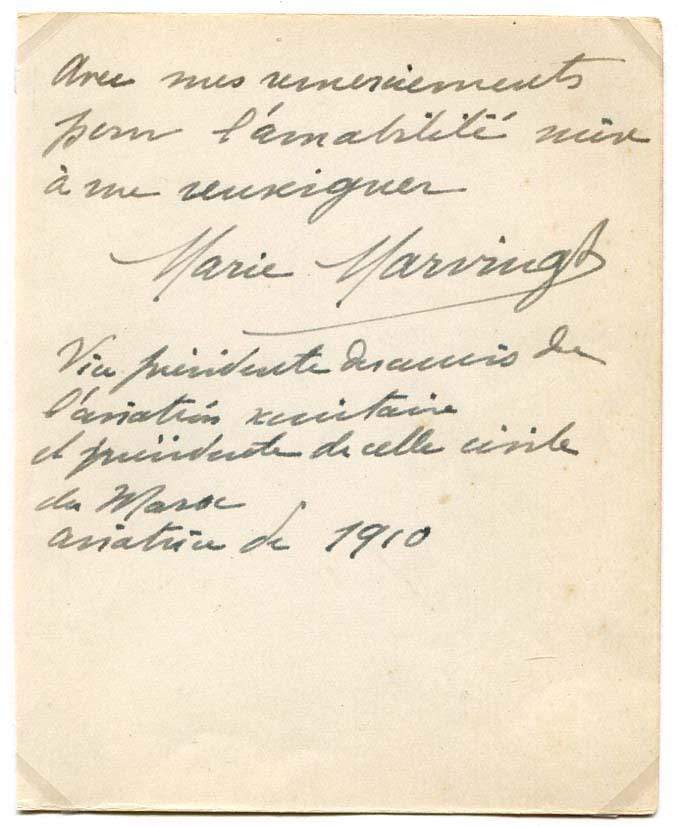 Avec mes remerciements
pour l'amabilité mise
à me renseigner
Marie Marvingt
Vice présidente des amis de
l'aviation sanitaire
et présidente de celle civile
du Maroc
aviatrice de 1910